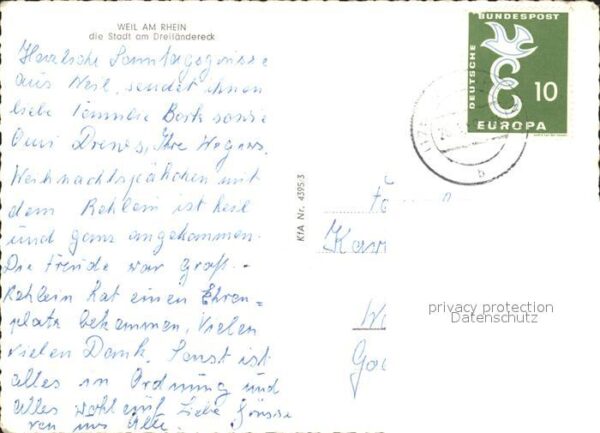 WEIL AM RHEIN
die Stadt am Dreiländereck
Herzliche Sonntagsgrüsse
aus Weil, sendet ihnen
liebe Familie Bork sowie
Omi Drenes, Ihre Wegers.
Weihnachtspäckchen mit
dem Rehlein ist heil
und ganz angekommen.
Die Freude war groß. -
Rehlein hat einen Ehren=
platz bekommen. Vielen
vielen Dank. Sonst ist
alles in Ordnung und
alles wohl auf. Liebe Grüsse
von uns Allen.
KfA Nr. 4395/3
DEUTSCHE
BUNDESPOST
10
EUROPA
b
privacy protection
Datenschutz